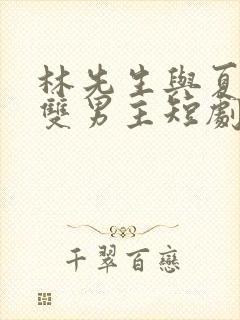 林先生與夏
雙男主短劇
千翠百戀